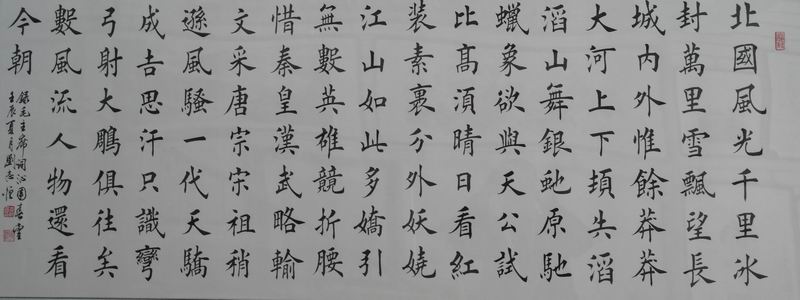 北國風光千里冰
封萬里雪飄望長
城內外惟餘莽莽
大河上下頓失滔
滔山舞銀虵原馳
蠟象欲與天公試
比髙須晴日看紅
裝素裹分外妖嬈
江山如此多嬌引
無數英雄競折腰
惜秦皇漢武略輸
文采唐宗宋祖稍
遜風騷一代天驕
成吉思汗只識彎
弓射大鵰俱往矣
數風流人物還看
今朝
錄毛主席詞沁園春雪
壬辰夏月劉志恒